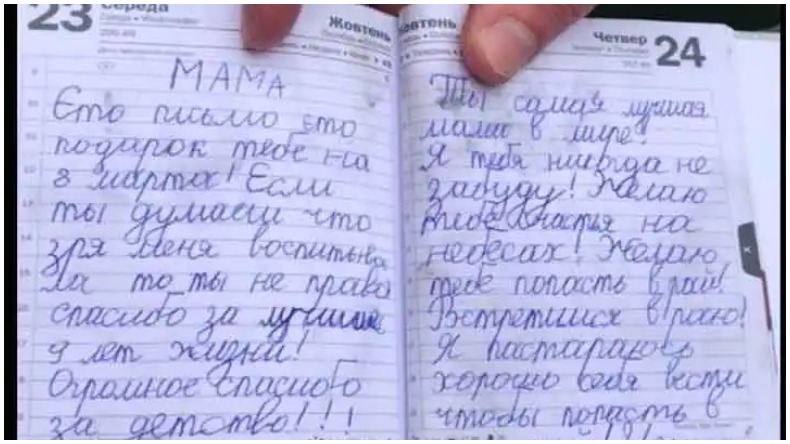 23 Середа
Жовтень
МАМА
Ето письмо ето
подарок тебе на
8 марта! Если
ты думаеш что
зря меня воспитыва
ла то ты не права
спасибо за лучшие
9 лет жизни!
Огромное спасибо
за детство!!!
Жовтень
Четвер 24
Ты самая лучшая
мама в мире!
Я тебя никогда не
забуду! Желаю
тебе счастья на
небесах! Желаю
тебе попасть в рай!
Встретимся в раю!
Я пастараюсь
хорошо себя вести
чтобы попасть в